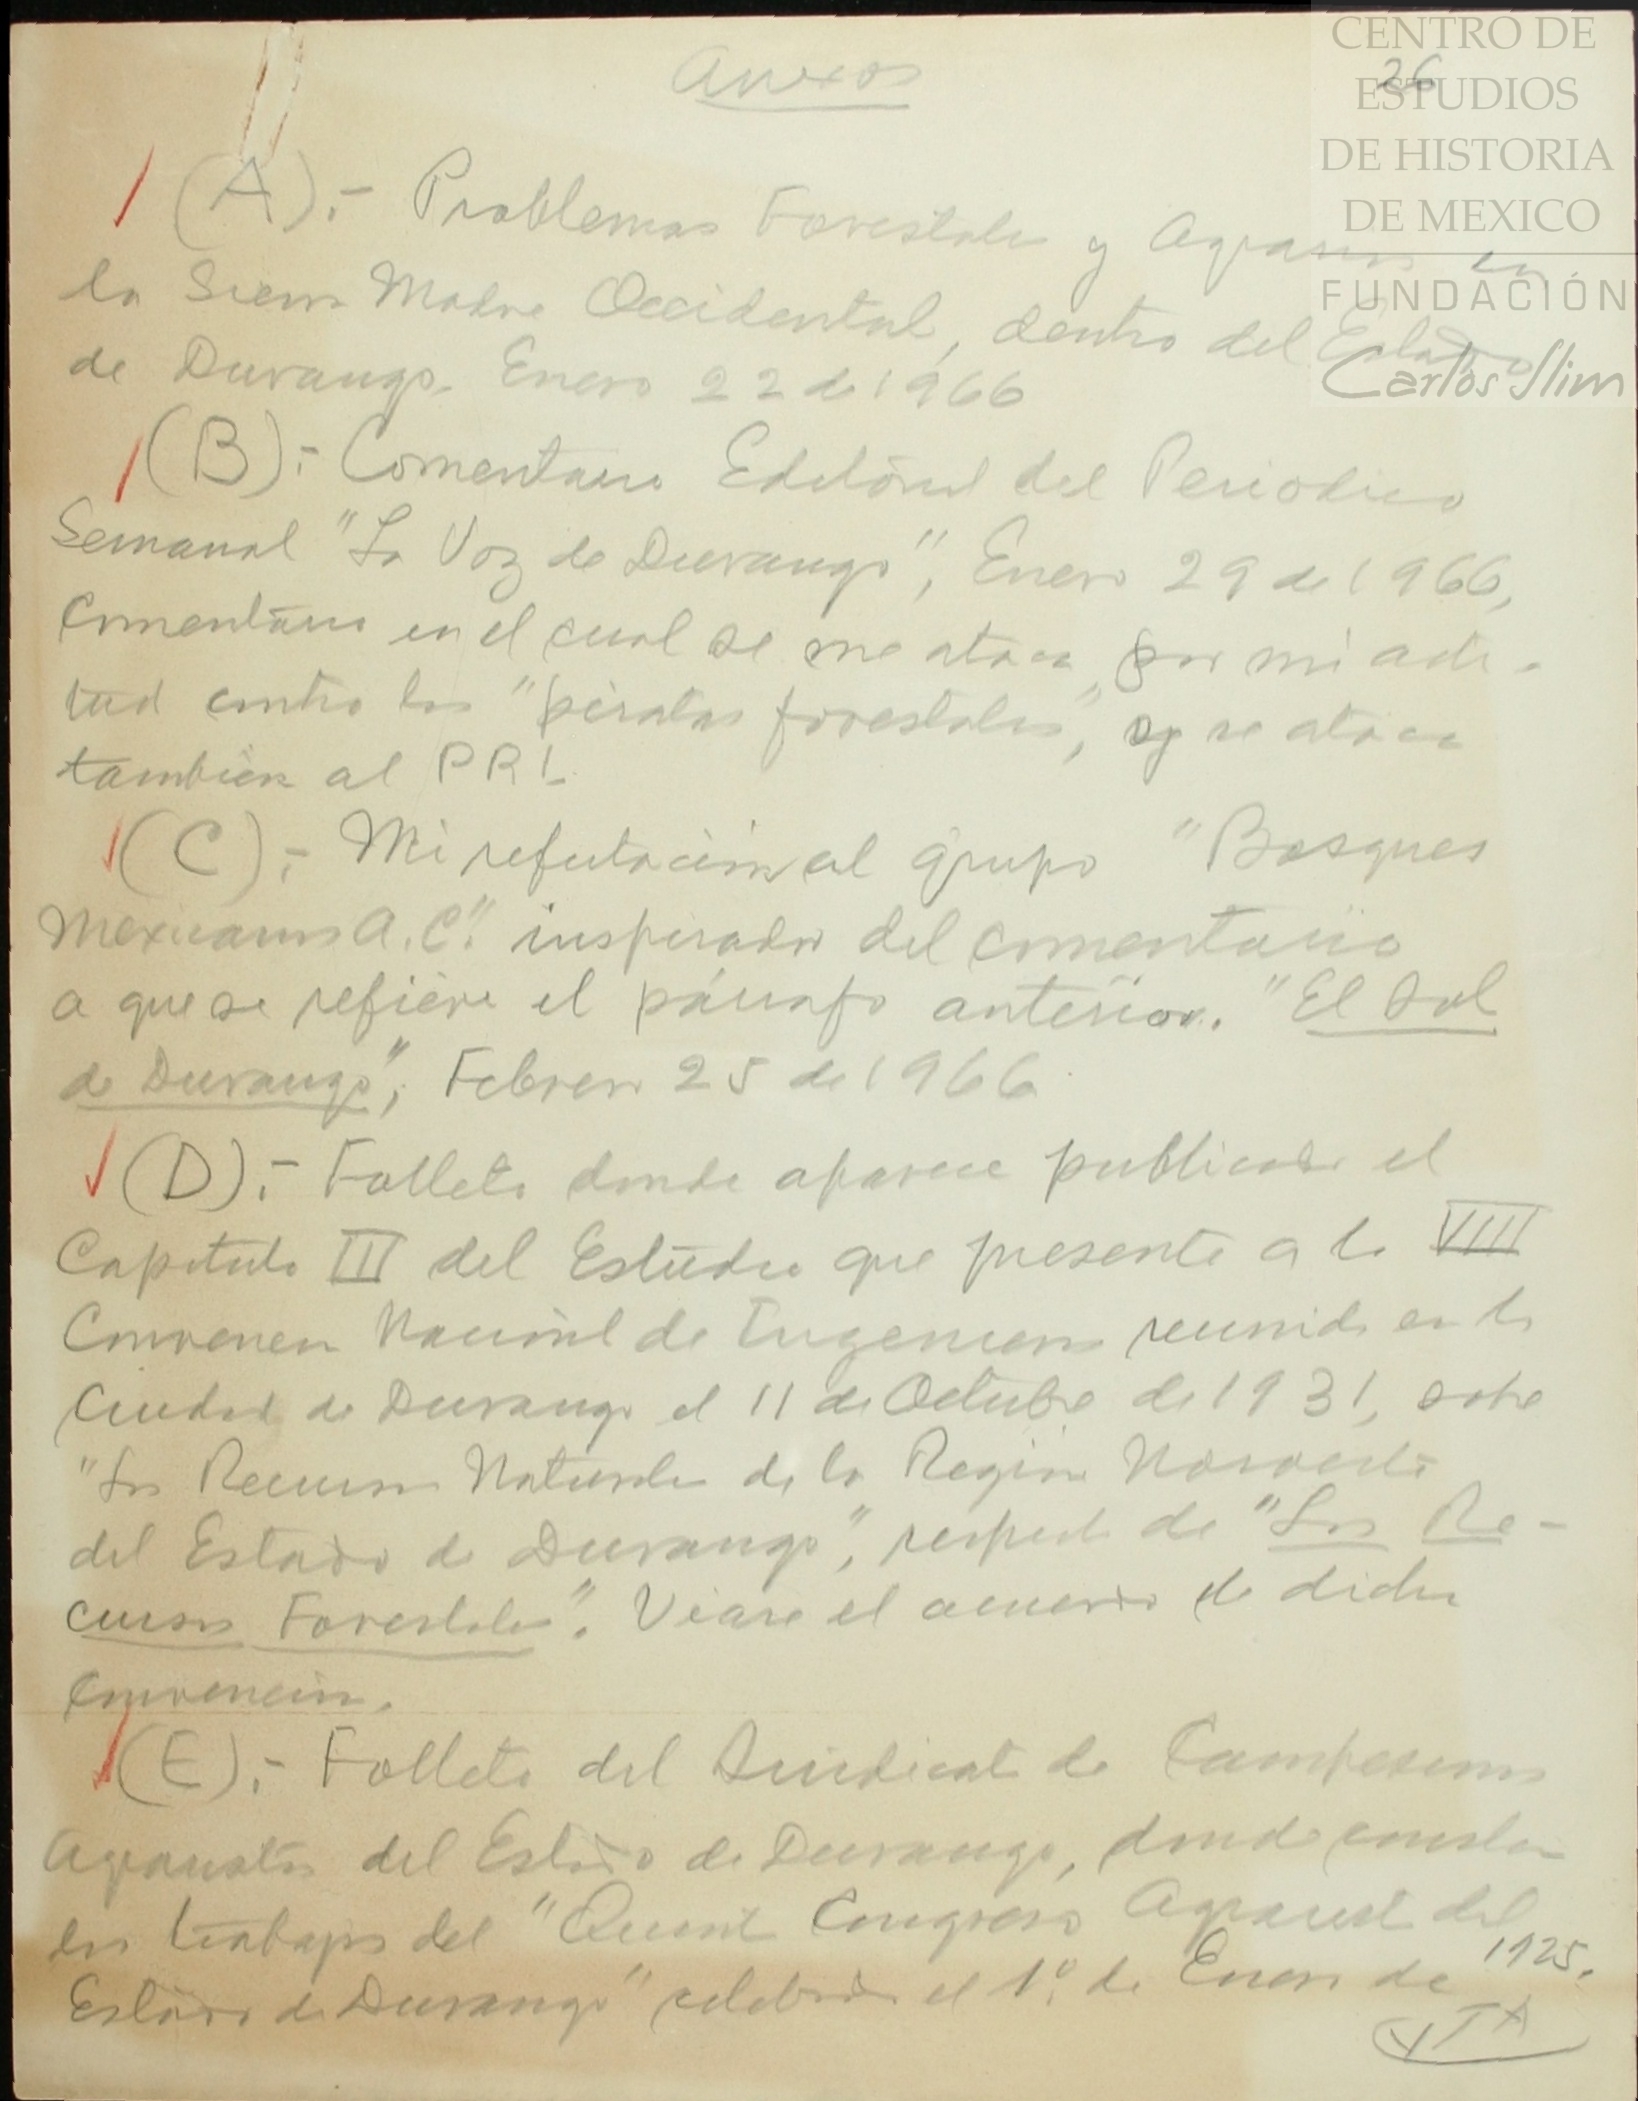 CENTRO DE
ESTUDIOS
DE HISTORIA
DE MEXICO
FUNDACIÓN
Carlos Slim
26
Anexos
(A).- Problemas Forestales y Agrarios en
la Sierra Madre Occidental, dentro del Estado
de Durango. Enero 22 de 1966
(B).- Comentario Editorial del Periodico
Semanal "La Voz de Durango", Enero 29 de 1966,
Comentario en el cual se me ataca por mi acti-
tud contra los "piratas forestales", y se ataca
también al PRI.
(C).- Mi refutación al grupo "Bosques
Mexicanos A.C." inspirador del comentario
a que se refiere el párrafo anterior. "El Sol
de Durango", Febrero 25 de 1966.
(D).- Folleto donde aparece publicado el
Capitulo III del Estudio que presenté a la VIII
Convención Nacional de Ingenieros reunida en la
Ciudad de Durango el 11 de Octubre de 1931, sobre
"Los Recursos Naturales de la Región Noroeste
del Estado de Durango", respecto de "Los Re-
cursos Forestales". Véase el acuerdo de dicha
Convención.
(E).- Folleto del Sindicato de Campesinos
Agraristas del Estado de Durango, donde constan
los trabajos del "Quinto Congreso Agrarista del
Estado de Durango" celebrado el 1º de Enero de 1925.